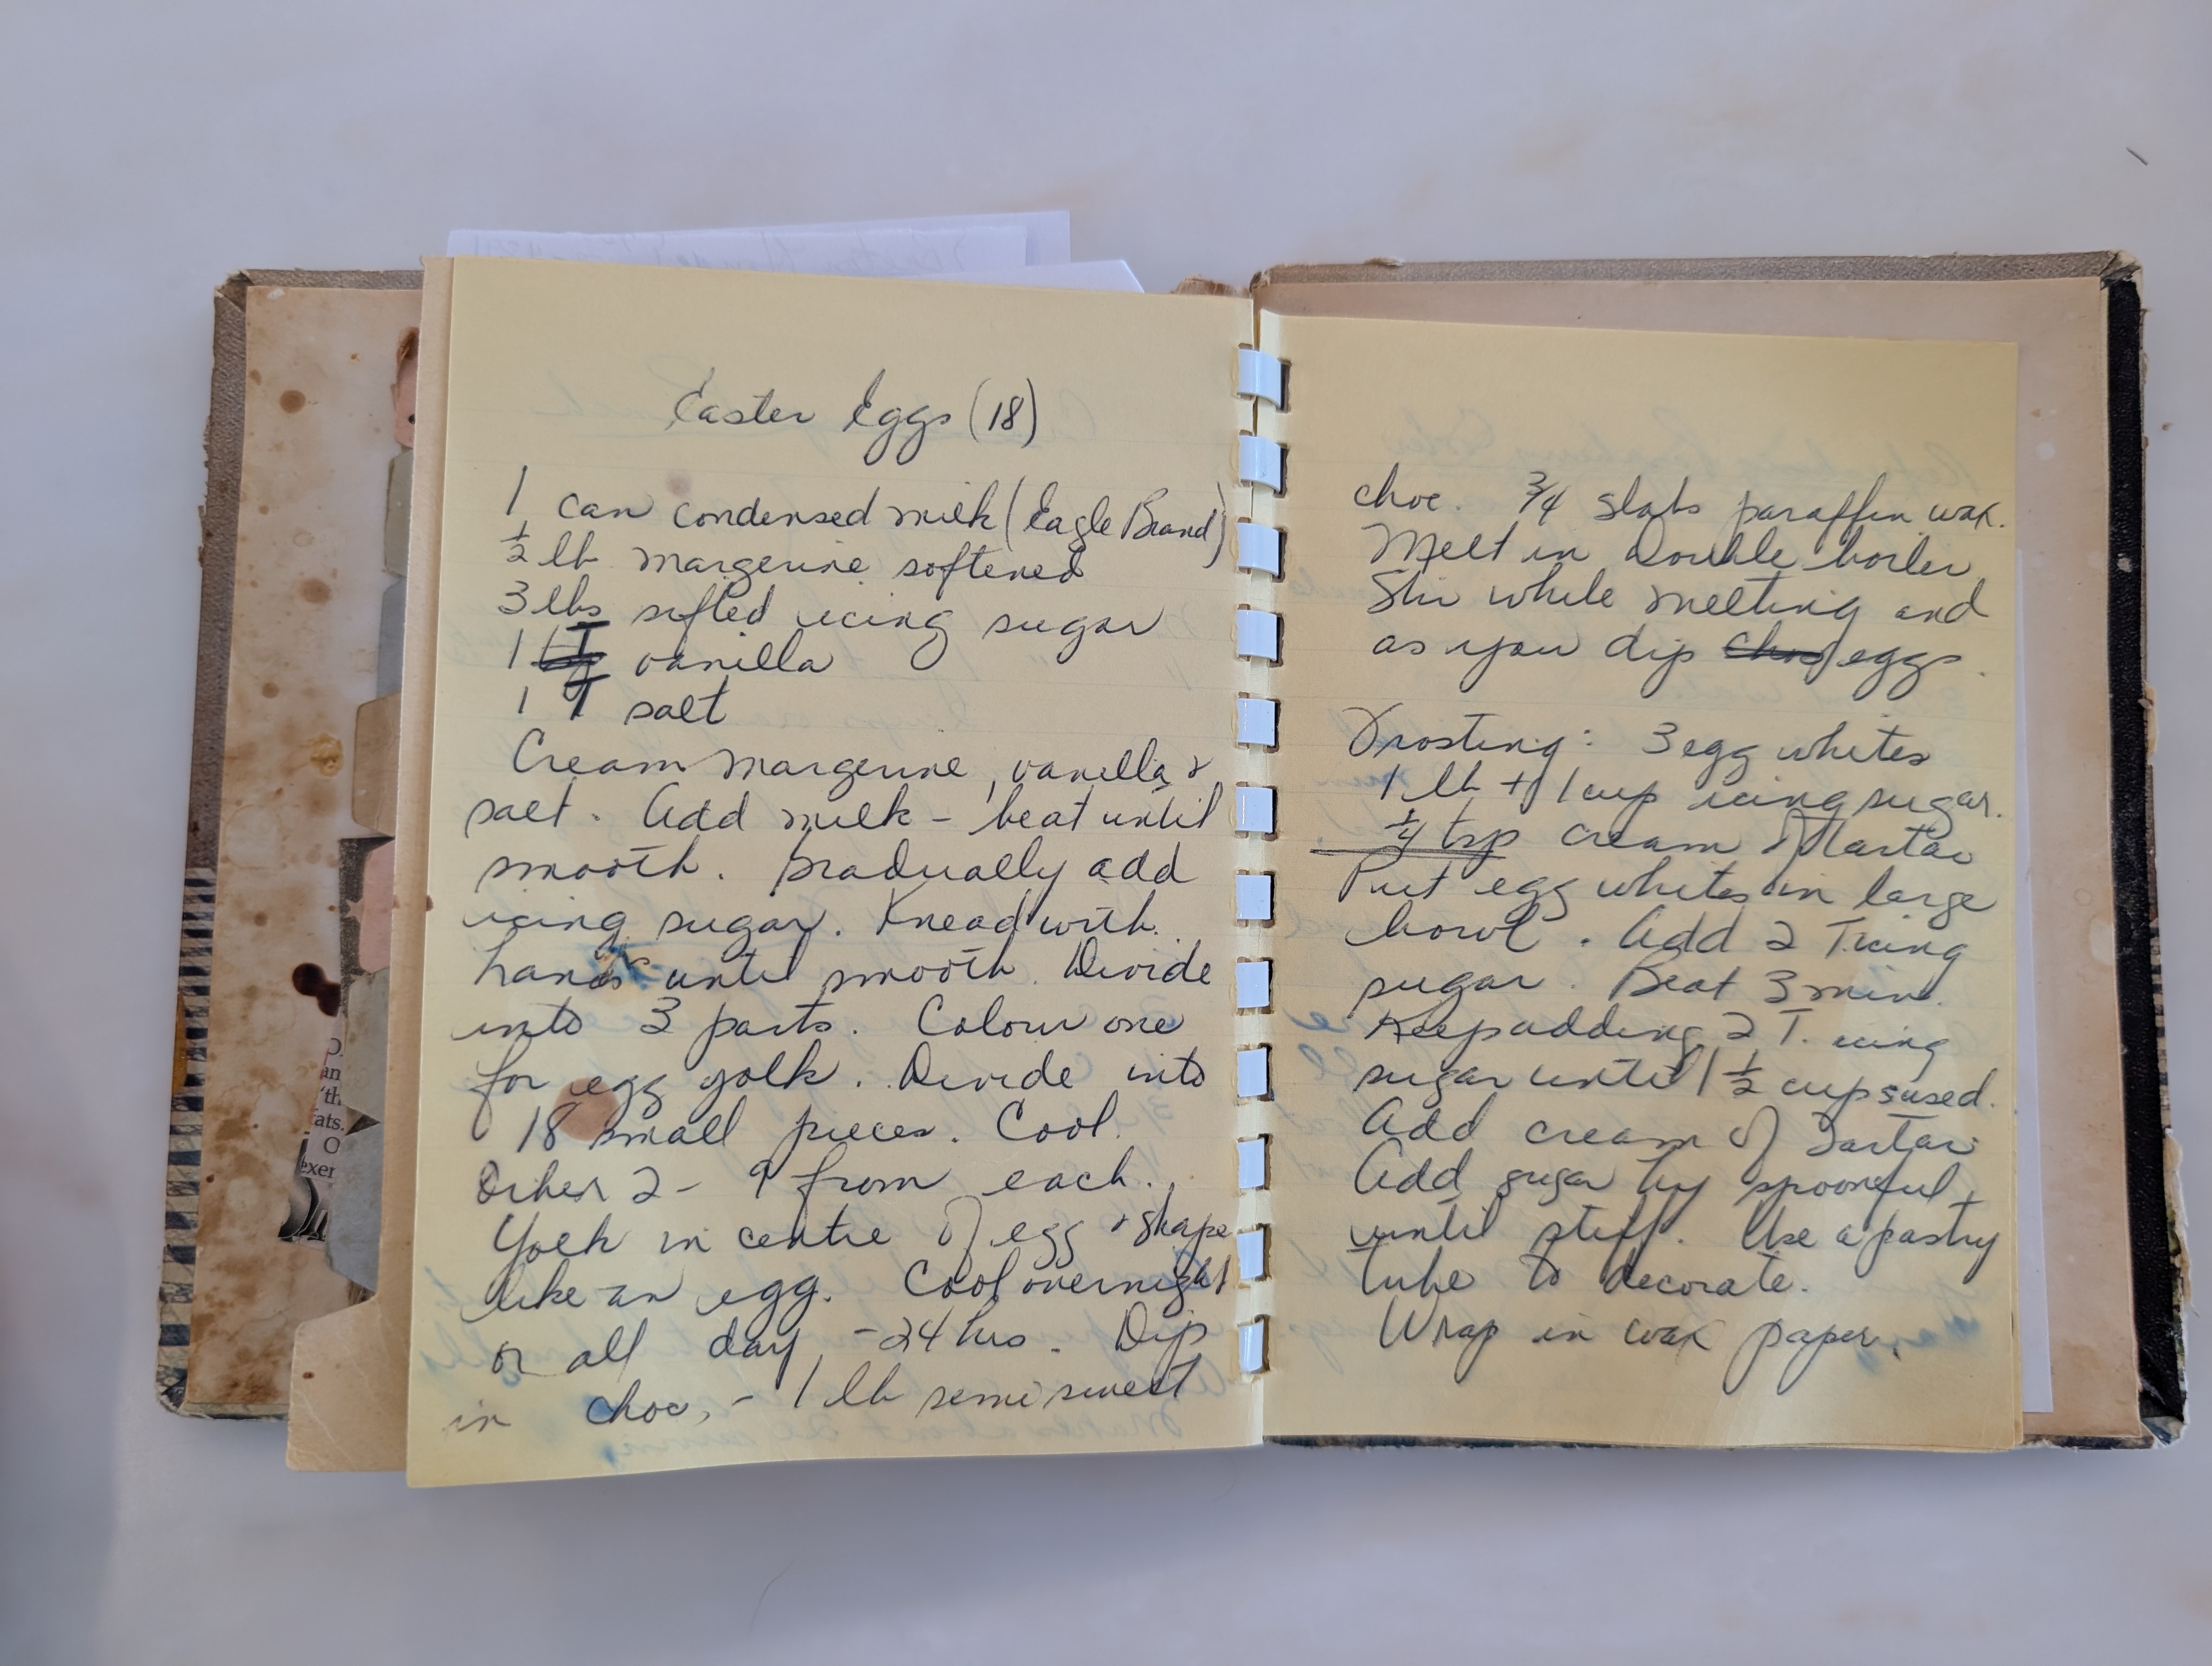 Easter Eggs (18)
1 can condensed milk (Eagle Brand)
½ lb margerine softened
3 lbs sifted icing sugar
1 T vanilla
1 T salt
Cream margerine, vanilla &
salt. Add milk - beat until
smooth. Gradually add
icing sugar. Knead with
hands until smooth. Divide
into 3 parts. Colour one
for egg yolk. Divide into
18 small pieces. Cool.
Other 2 - 9 from each.
Yolk in centre of egg & shape
like an egg. Cool overnight
or all day - 24 hrs. Dip
in choc, - 1 lb semi sweet
choc. ¾ slabs paraffin wax.
Melt in Double boiler
Stir while melting and
as you dip choc eggs.
Frosting: 3 egg whites
1 lb + 1 cup icing sugar.
¼ tsp cream of tartar
Put egg whites in large
bowl. Add 2 T. icing
sugar. Beat 3 min.
Keep adding 2 T. icing
sugar until 1 ½ cups used.
Add cream of Tartar
Add sugar by spoonful
until stiff. Use a pastry
tube to decorate.
Wrap in wax paper.
'th
ats.
O
exer